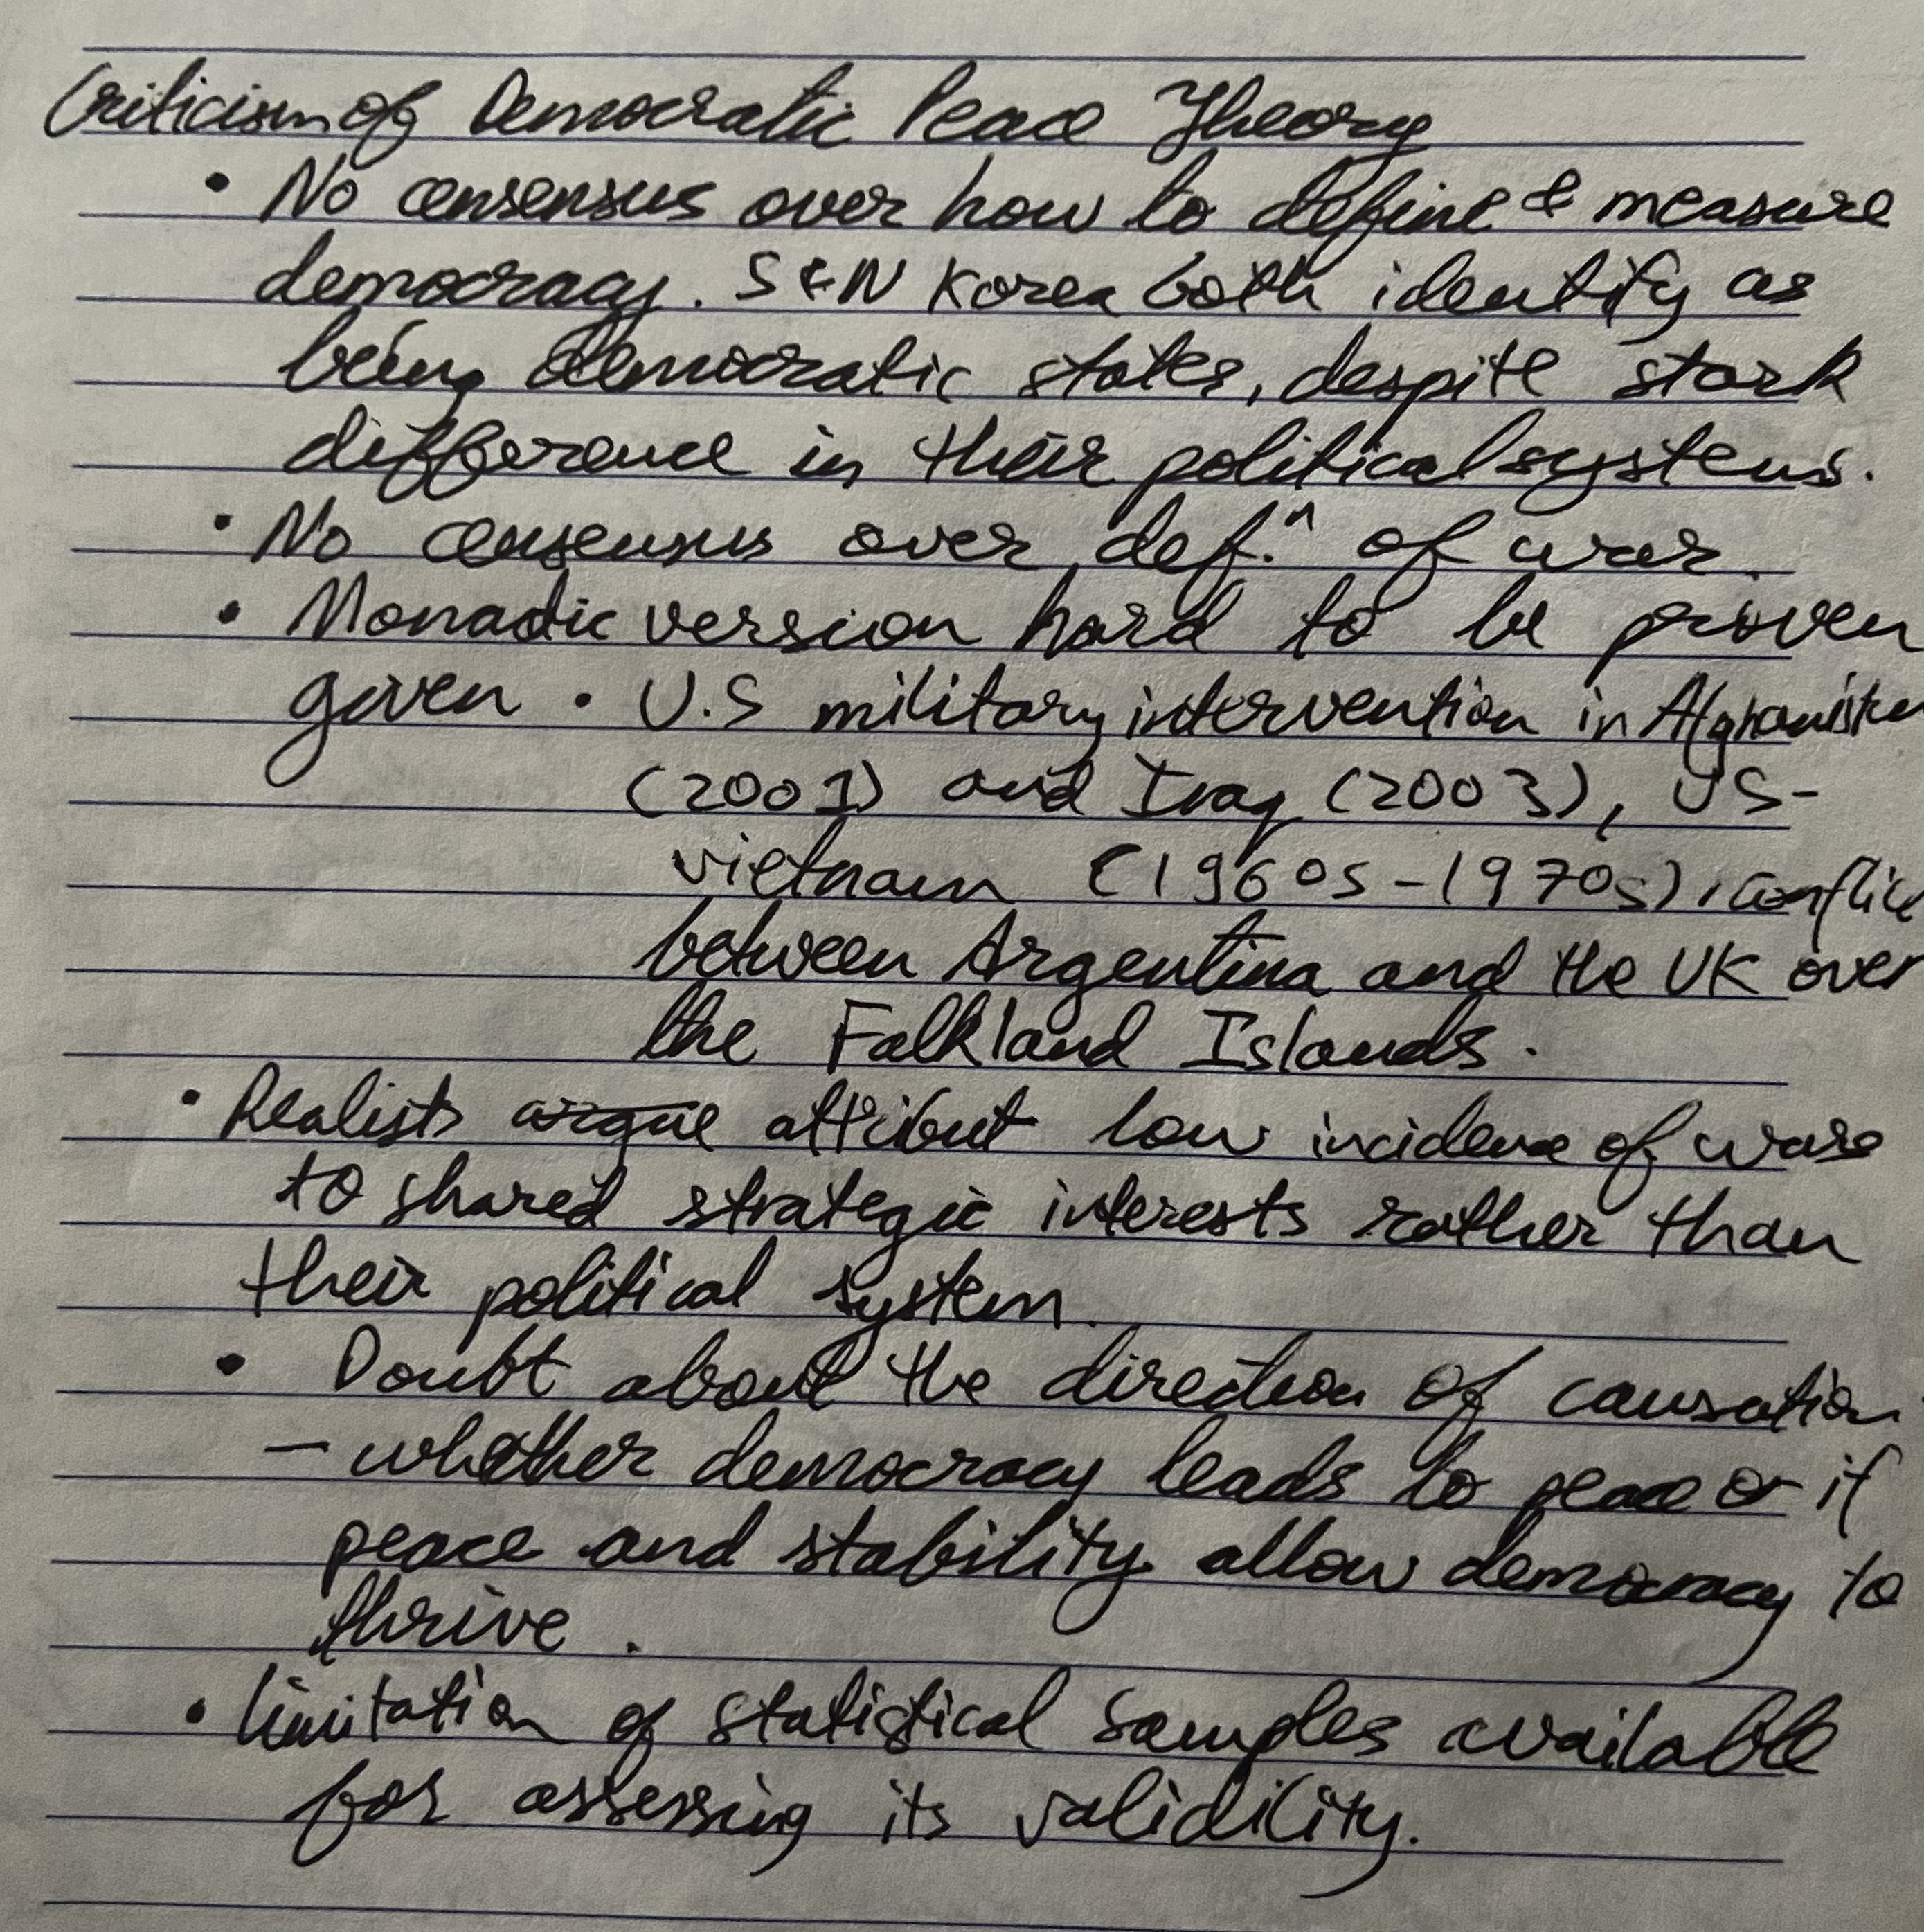 Criticism of Democratic Peace Theory
• No consensus over how to define & measure
democracy. S & N Korea both identify as
being democratic states, despite stark
difference in their political systems.
• No consensus over def.n of war.
• Monadic version hard to be proven
given • U.S military intervention in Afghanistan
(2001) and Iraq (2003), US-
Vietnam (1960s-1970s), conflic
between Argentina and the UK over
the Falkland Islands.
• Realists argue attribut low incidence of wars
to shared strategic interests rather than
their political system.
• Doubt about the direction of causation
- whether democracy leads to peace or if
peace and stability allow democracy to
thrive.
• limitation of statistical samples available
for assessing its validility.